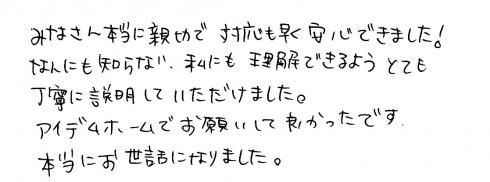 みなさん本当に親切で 対応も早く安心できました!
なんにも知らない、私にも 理解できるよう とても
丁寧に説明していただけました。
アイデムホームでお願いして良かったです.
本当にお世話になりました。